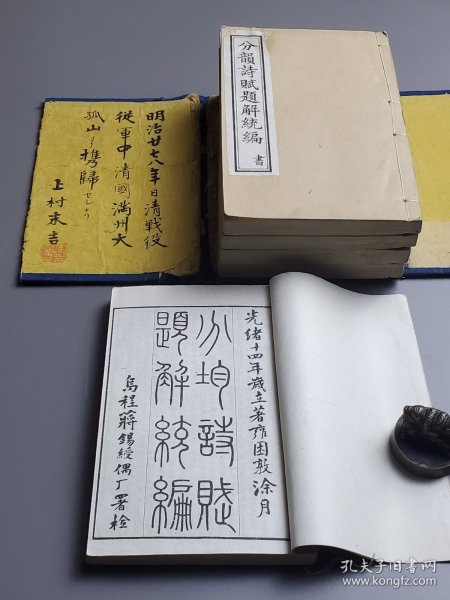 分韻詩賦題解統編
書
明治廿七八年日清戰役
從軍中清國滿州大
孤山ヨリ携歸セシナリ
上村末吉
光緒十四年歲在著雍困敦涂月
分均詩賦
題解統編
烏程蔣錫綬偶丁署檢
孔夫子旧书网
www.kongfz.com